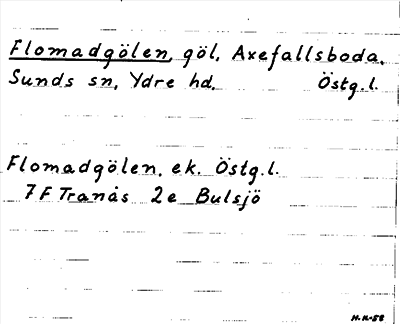 Flomadgölen, göl, Axefallsboda,
Sunds sn, Ydre hd. Östg.l.
Flomadgölen, ek. Östg.l.
7 F Tranås 2e Bulsjö
H.K-58